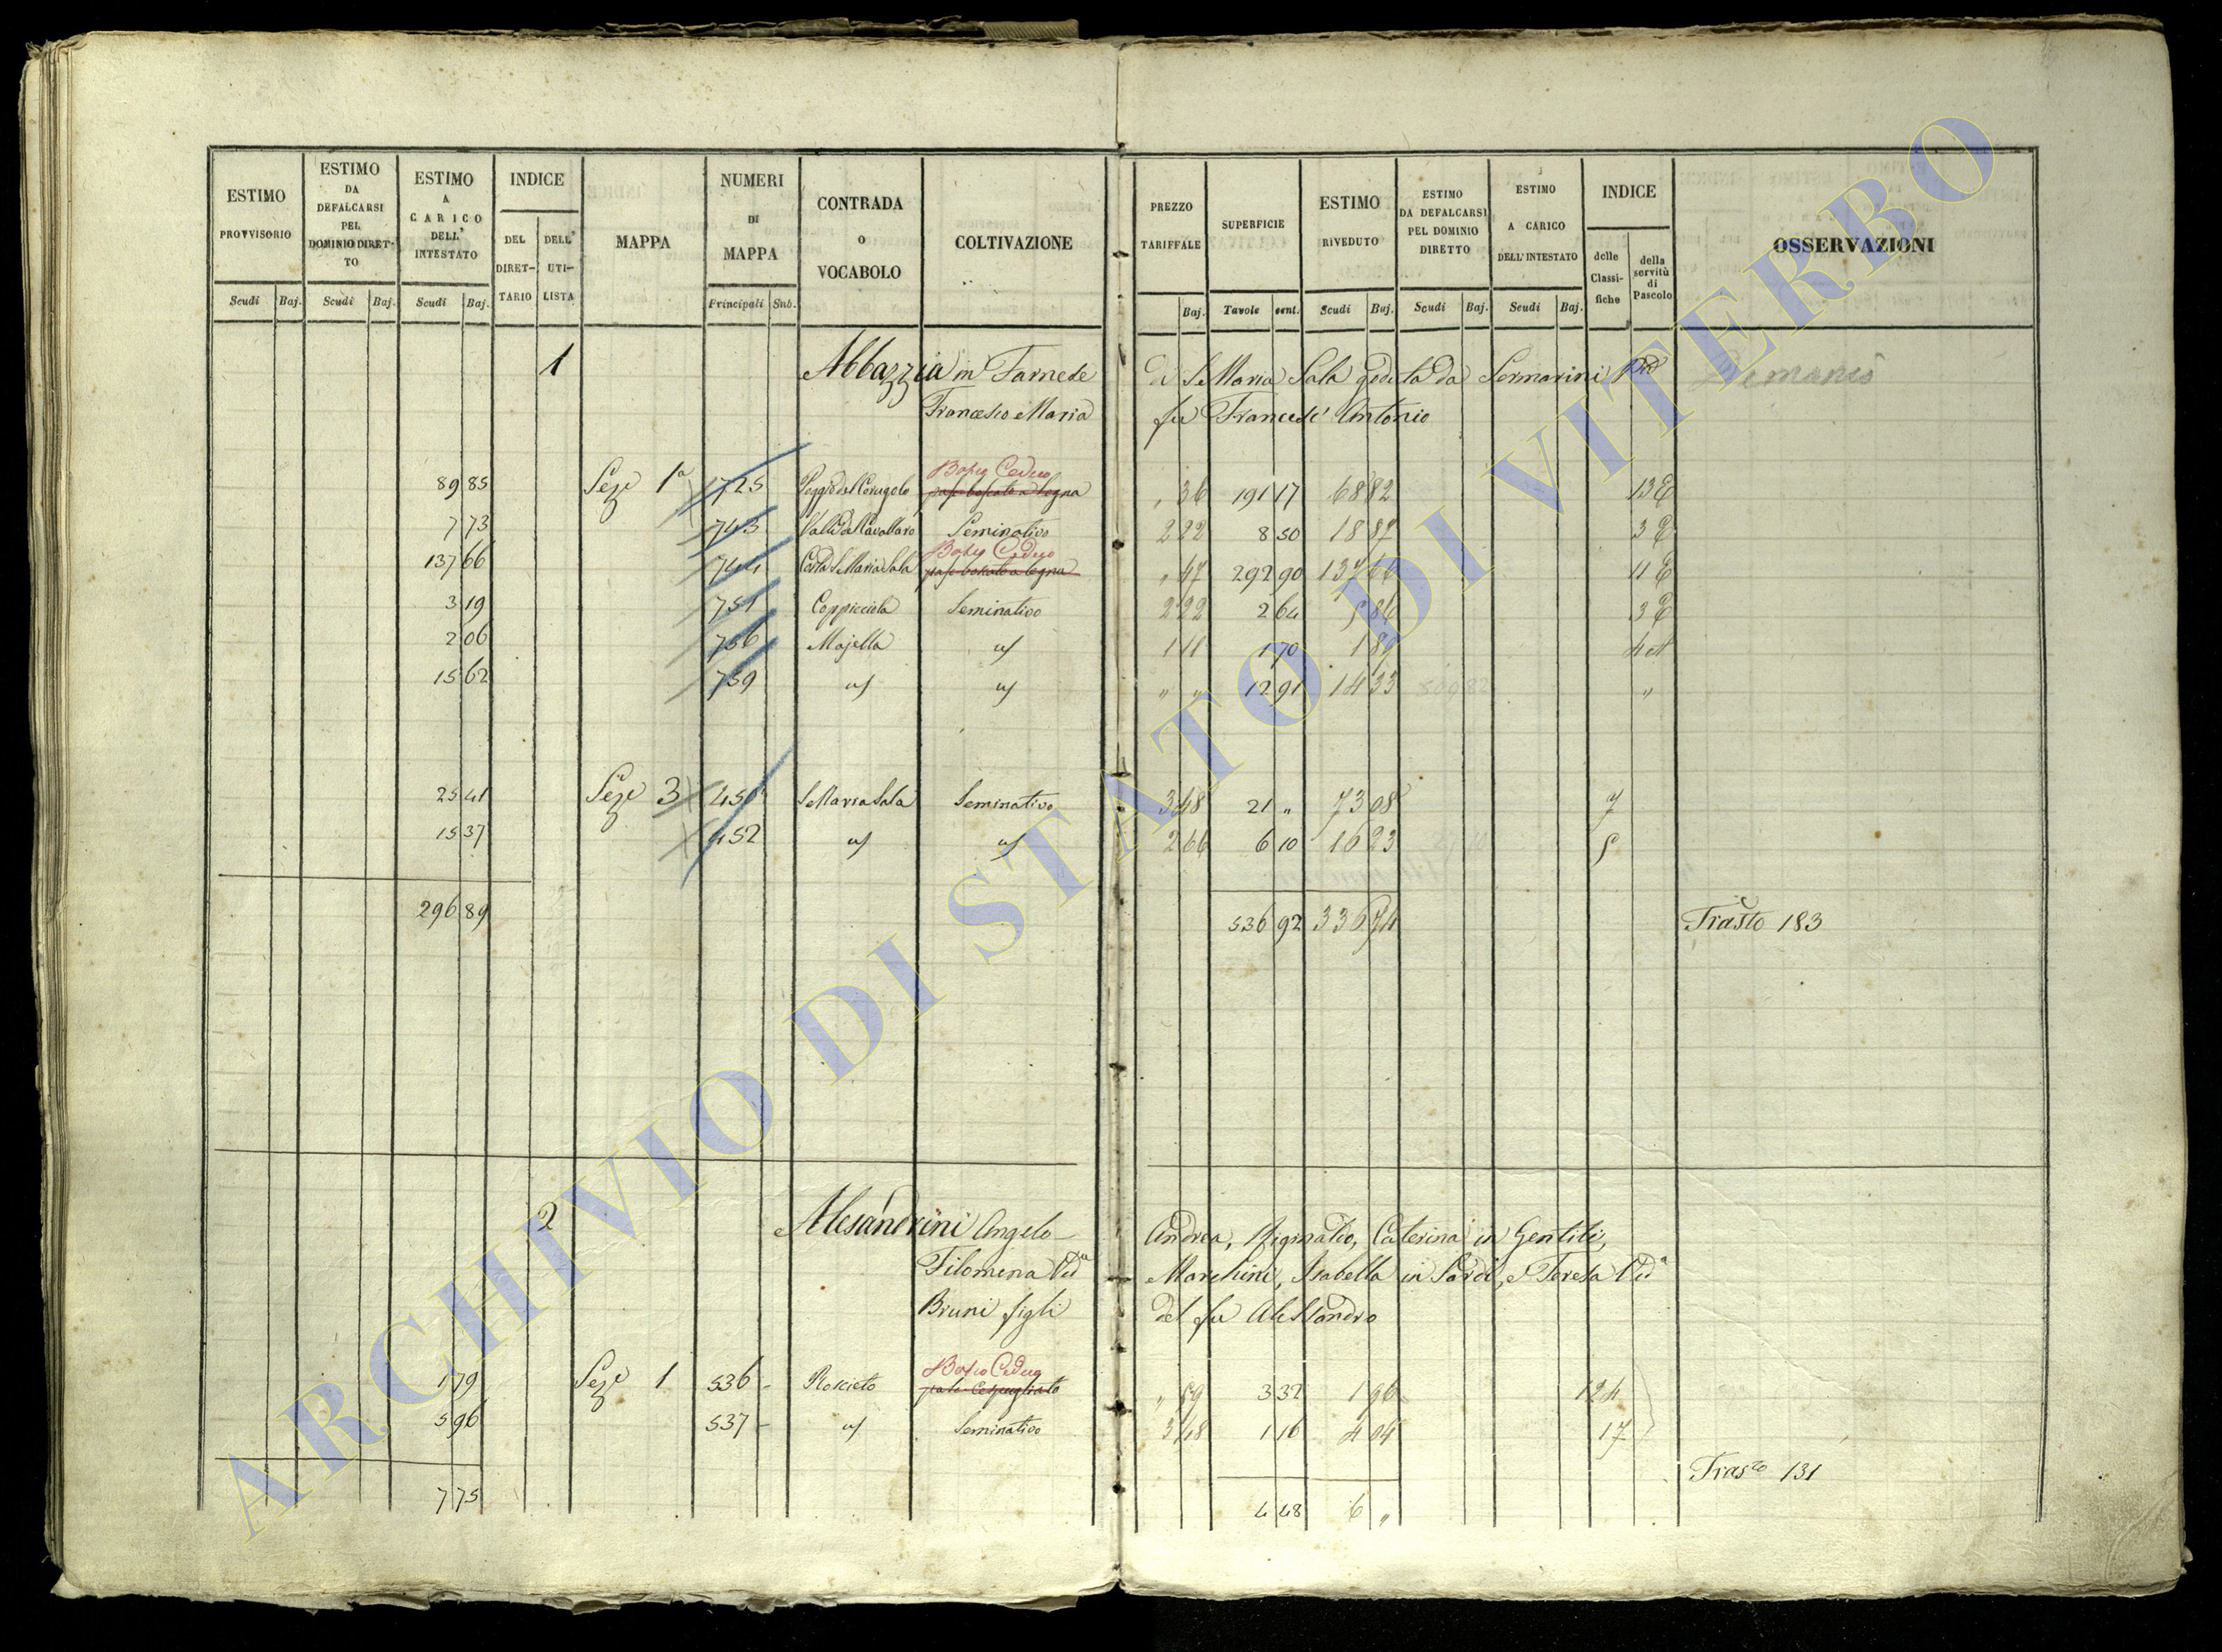 ESTIMO PROVVISORIO
ESTIMO DA DEFALCARSI PEL DOMINIO DIRET-TO
ESTIMO A CARICO DELL' INTESTATO
INDICE
DEL DIRET-TARIO
DELL' UTI-LISTA
MAPPA
NUMERI DI MAPPA
CONTRADA O VOCABOLO
COLTIVAZIONE
PREZZO TARIFFALE
SUPERFICIE
ESTIMO RIVEDUTO
ESTIMO DA DEFALCARSI PEL DOMINIO DIRETTO
ESTIMO A CARICO DELL' INTESTATO
INDICE
delle Classi-fiche
della servitù di Pascolo
OSSERVAZIONI
Scudi Baj. Scudi Baj. Scudi Baj. Principali Sub. Baj. Tavole cent. Scudi Baj. Scudi Baj. Scudi Baj.
1 Abbazzia in Farnese di S. Maria Sala goduta da Sermarini
Francesco Maria fu Francesc' Antonio
Bosco Ceduo
89 85 Seze 1a 725 " 36 191 17 68 82 13 E
7 73 743 Valle del Cavallaro Seminativo 2 22 8 50 18 87 3 E
Bosco Ceduo
137 66 744 Costa S. Maria Sala pasc. boscato a legna " 47 292 90 137 66 11 E
3 19 751 Coppicciola Seminativo 2 22 2 64 5 86 3 E
2 06 756 Majella 1 11 1 70 1 89 4
15 62 759 " " 12 91 14 33 "
25 41 Seze 3 450 S. Maria Sala Seminativo 3 48 21 " 73 08 7
15 37 452 2 66 6 10 16 23 5
296 89 536 92 336 74 Trasto 183
2 Alesandrini Angelo Andrea, Caterina in Gentili,
Filomena Va Marchini, Isabella in Sardi, e Teresa Va
Bruni figli del fu Alessandro
Bosco Ceduo
1 79 Seze 1 536 Roscieto pasc. Cespugliato " 59 3 32 1 96 12 4
5 96 537 Seminativo 3 48 1 16 4 04 17
Trasto 131
7 75 4 48 6 "
ARCHIVIO DI STATO DI VITERBO